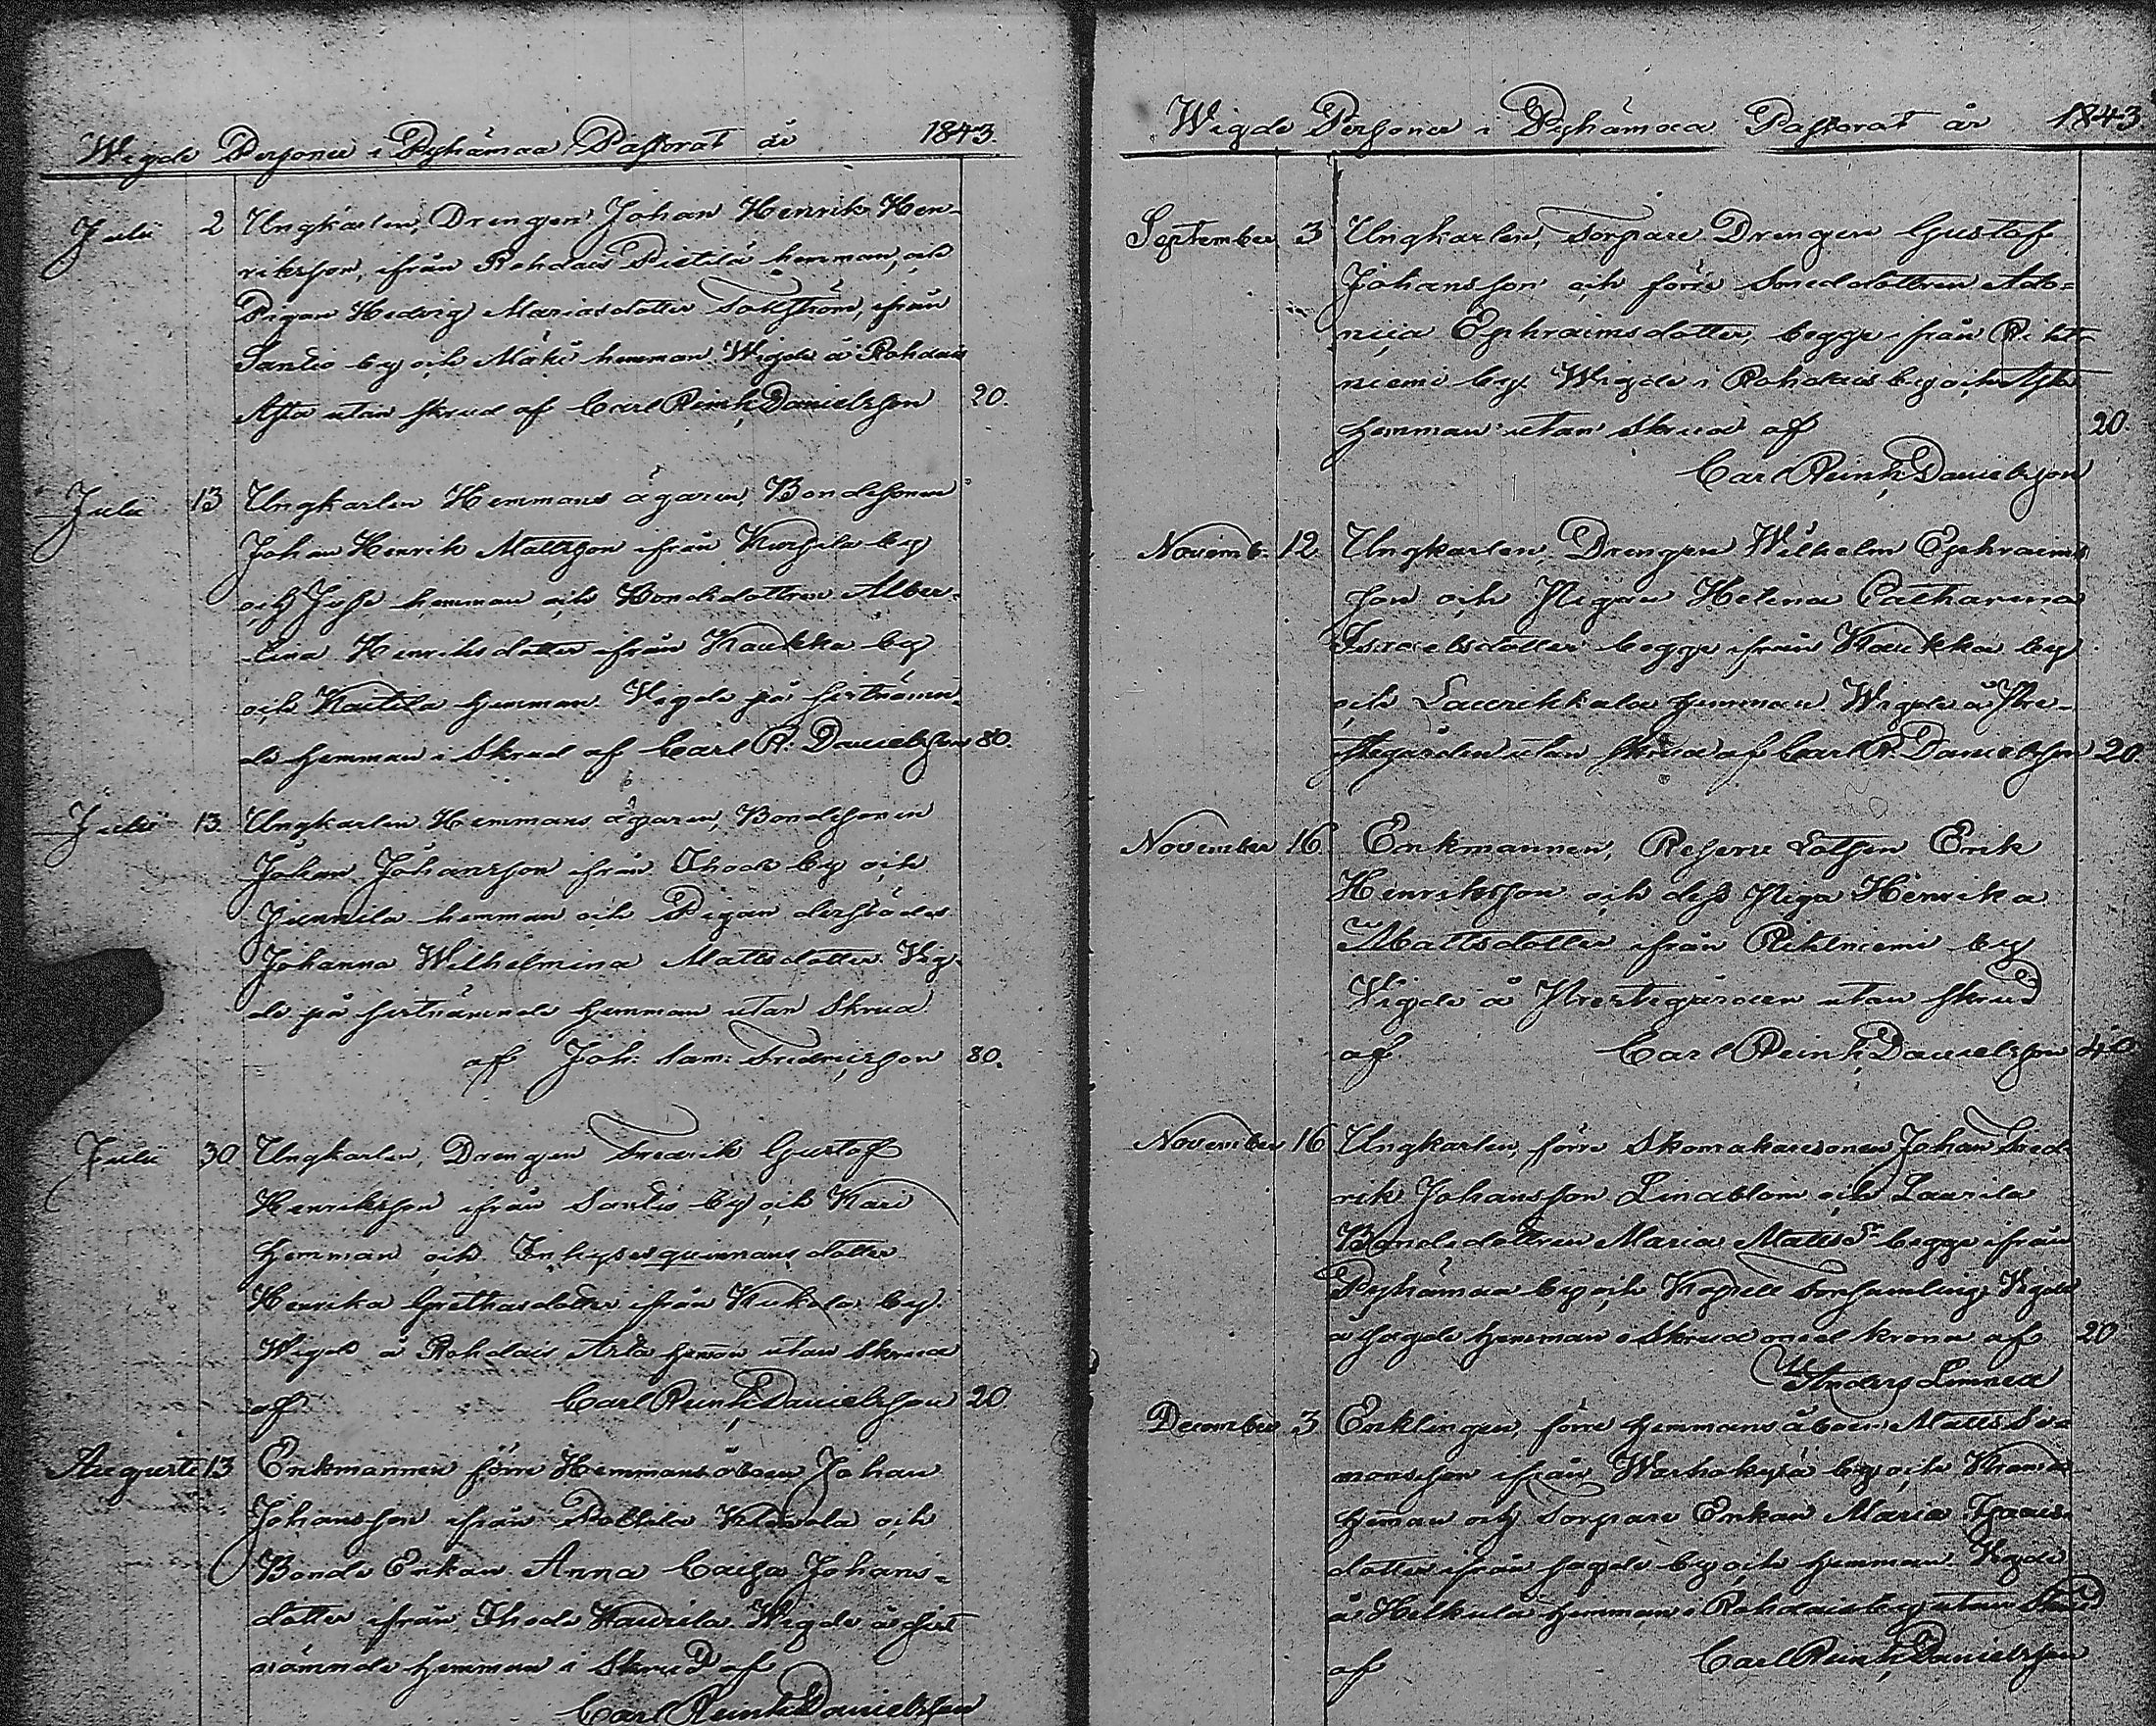 Wigde Personer i Pyhämaa Pastorat år 1843.
Julii 2 Ungkarlen, Drengen Johan Henrik Hen-
riksson, ifrån Rohdais Pietilä hemman, och
Pigan Hedvig Mariasdotter ifrån
Santio by och Mäki hemman. Wigde å Rohdais
Asta utan skrud af Carl Reinh. Danielsson 20.
Julii 13 Ungkarlen Hemmans ägaren, Bondesonen
Johan Henrik Mattsson ifrån Kursila by
och Jussi hemman och Bondedottren Alber-
tina Henriksdotter ifrån Kaukka by
och hemman. Vigde på sistnämn-
de hemman i Skrud af Carl R. Danielsson 80.
Julii 13. Ungkarlen Hemmans ägaren, Bondesonen
Johan Johansson ifrån Ihode by och
hemman och Pigan derstädes
Johanna Wilhelmina Mattsdotter. Vig-
de på sistnämnde hemman utan Skrud
af Joh: Sam: Fredricsson 80.
Julii 30 Ungkarlen, Drengen Fredrik Gustaf
Henriksson ifrån Santio by och Kari
Hemman och Inhyses quinnans dotter
Henrika Grethasdotter ifrån Kukola by.
Wigde å Rohdais Asta hemman utan Skrud
af Carl Reinh. Danielsson 20
Augusti 13 Enkmannen förre Hemmansåboen Johan
Johansson ifrån och
Bonde Enkan Anna Caisa Johans-
dotter ifrån Ihode Kaurila. Wigde å sist
nämnde hemman i Skrud af
Carl Reinh. Danielsson
Wigde Personer i Pyhämaa Pastorat år 1843
September 3 Ungkarlen, Torpare Drengen Gustaf
Johansson och förre Smeddottren
Ephraimsdotter, begge ifrån Riht-
niemi by. Wigde i Rohdais by och Asta
hemman utan Skrud af 20.
Carl Reinh. Danielsson
Novemb. 12 Ungkarlen, Drengen Wilhelm Ephraims
son och Pigan Helena Catharina
Israelsdotter begge ifrån Kaukka by
och Laurikkala hemman Wigde å Pre-
stegården utan skrud af Carl R. Danielsson 20.
November 16. Enkmannen, Reserve Lotsen Erik
Henriksson och dess Piga Henrika
Mattsdotter ifrån Rihtniemi by
Vigde å Prestegården utan skrud
af Carl Reinh. Danielsson 40
November 16 Ungkarlen, förre Skomakaresonen Johan Fred-
rik Johansson Lindblom och Laurila
Bondedottren Maria Matts Dr begge ifrån
Pyhämaa by och Kapell Församling. Vigde
å sagde hemman i Skrud med krona af 20
Anders Linnea
December 3 Enklingen, förre hemmansåboen Matts Si-
monsson ifrån by och
heman och Torpare Enkan Maria Isaacs-
dotter ifrån sagde by och hemman. Vigde
å hemman i Rohdais by utan Skrud
af Carl Reinh. Danielsson